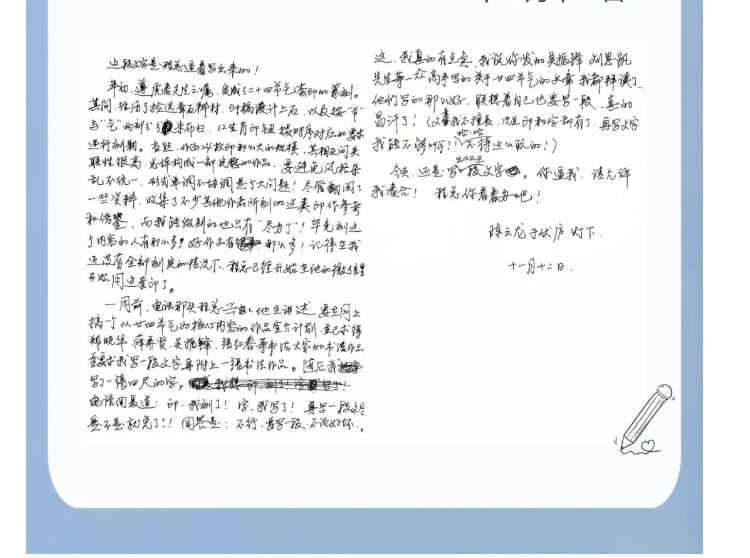 这段文字是程总逼着写出来的！
年初，遵虎老先生之嘱，完成了二十四节气套印的篆刻。
其间，经历了检选青石料材、印稿设计上石，以及按“节”
与“气”两部分朱布白，12生肖印钮按时序对应的要求
进行刻制。首先，作为24枚印那么大的规模，其相互间关
联性很高，总体构成一部完整的作品，要避免风格杂
乱不统一、形式单调不协调是个大问题！尽管翻阅了
一些资料，收集了不少其他作者所刻的这类印作参考
和借鉴，而我能做到的也只有“尽力了”！毕竟刻这
个内容的人有那么多！好作品有那么多！记得在我
还没有全部刻完的情况下，程总已经开始在他的微信里
开始用这套印了。
一周前，电话那头程总兴奋地在讲述，要在网上
搞个以廿四节气为核心内容的作品宣介计划，并已求得
郑晓华、薛养贤、吴振锋、张红春等书法大家的书法作品
并要求我写一段文字再附上一张书法作品。随后我
写了一张四尺的字。
电话回复道：印，我刻了！字，我写了！再写一段文字
是不是就免了！！回答是：不行，要写一段，不论好坏。
这，我真的有点急，我说你发的吴振锋、刘恩凯
先生等一众高手写的关于廿四节气的文章我都拜读了，
他们写的那么好，联想着自己也要写一段，真的
冒汗了！（文章我不擅长，况且印和字都有了，再写文字
我能不谬吗？！哈哈 不得这么跟的！）
今天，还是写出以上这段文字吧。你逼我，请允许
我凑合！程总你看着办吧！
陈云龙于伏庐灯下
十一月十二日.